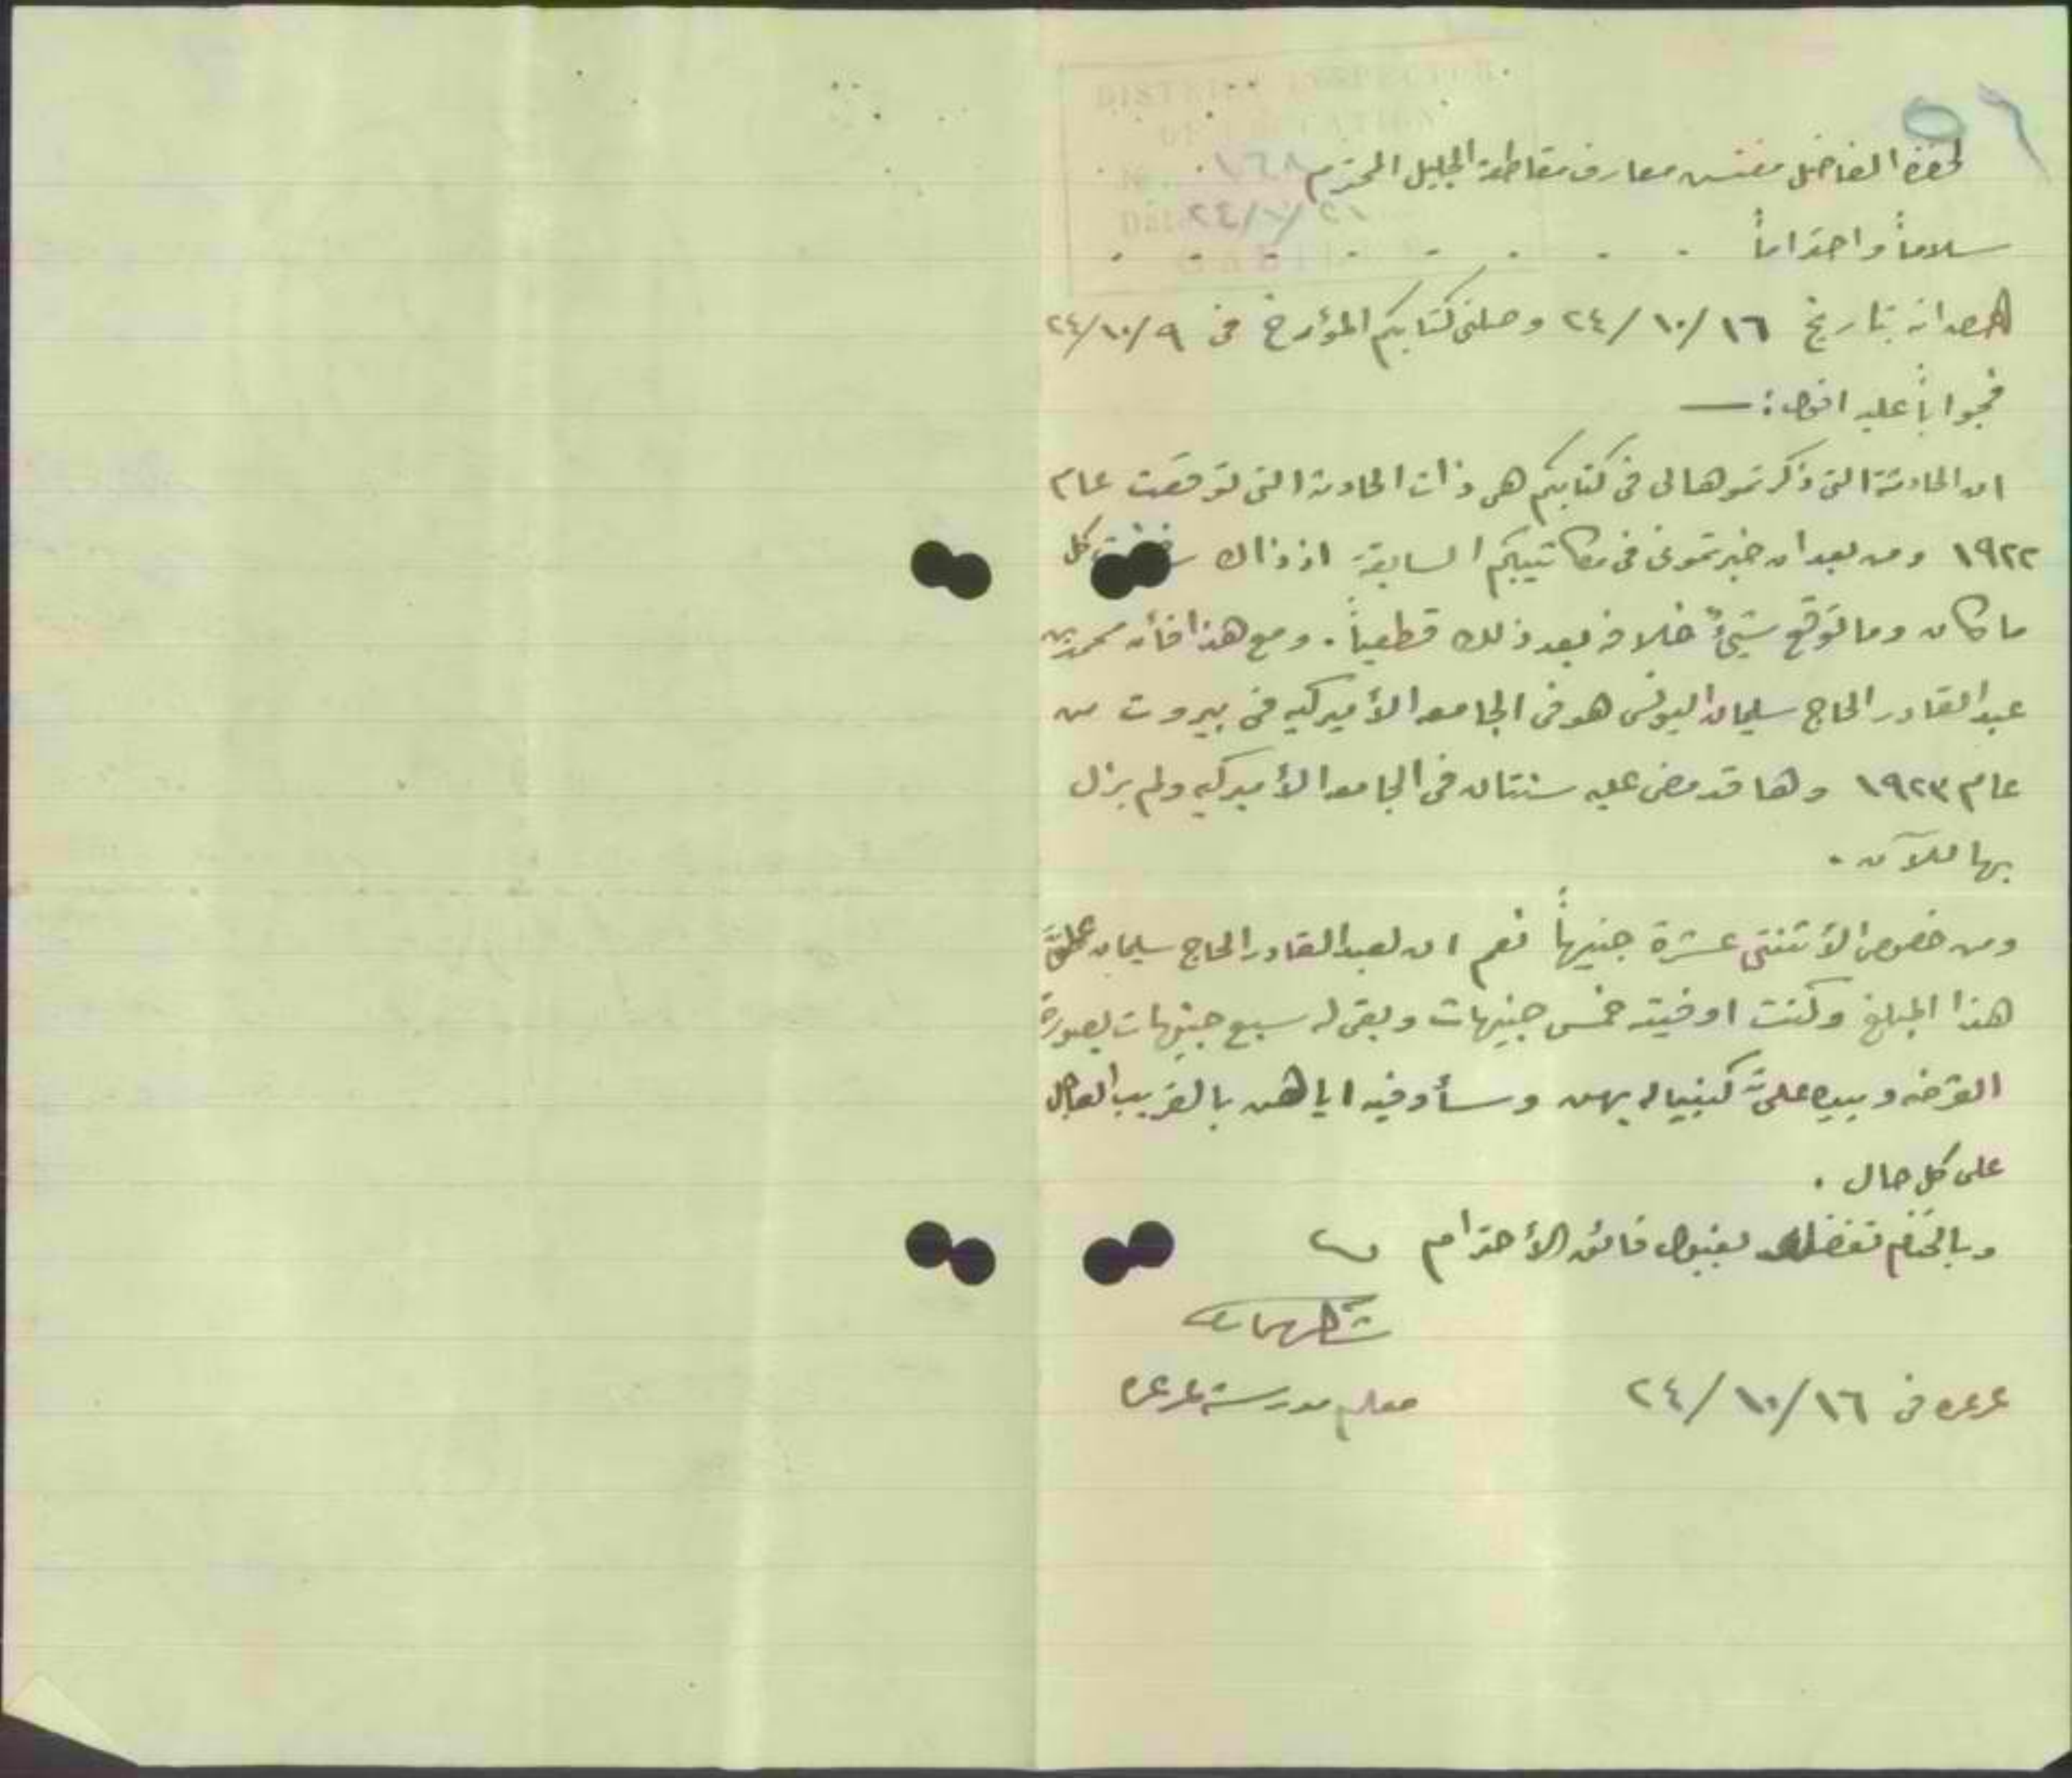 ٥٦
DISTRICT INSPECTOR
OF EDUCATION
No. ١٦٨
Date ٢٤/١٠/٢١
لحضرة الفاضل مفتش معارف مقاطعة الجليل المحترم
سلاماً واحتراماً . . . . . . . .
انه بتاريخ ١٦/١٠/٢٤ وصلني كتابكم المؤرخ في ٩/١٠/٢٤
فجواباً عليه اقول :—
ان الحادثة التي ذكرتموها لي في كتابكم هي ذات الحادثة التي توقعت عام
١٩٢٢ ومن بعد ان خبرتموني في مكاتيبكم السابقة اذ ذاك كل
ما كان وما توقع شيئٌ خلافه بعد ذلك قطعياً . ومع هذا فأن محمد بن
عبد القادر الحاج سليمان اليونس هو في الجامعه الأميركيه في بيروت من
عام ١٩٢٣ وها قد مضى عليه سنتان في الجامعه الأميركيه ولم يزل
بها للآن .
ومن خصوص الأثنتى عشرة جنيهاً نعم ان لعبد القادر الحاج سليمان عليَّ
هذا المبلغ وكنت اوفيته خمس جنيهات وبقى له سبع جنيهات بصورة
القرضه وبيده عليَّ كمبياله بهن وسأوفيه اياهن بالقريب العاجل
على كل حال .
وبالختام تفضلوا بقبول فائق الأحترام
معلم مدرسة عرعره
عرعره في ١٦/١٠/٢٤